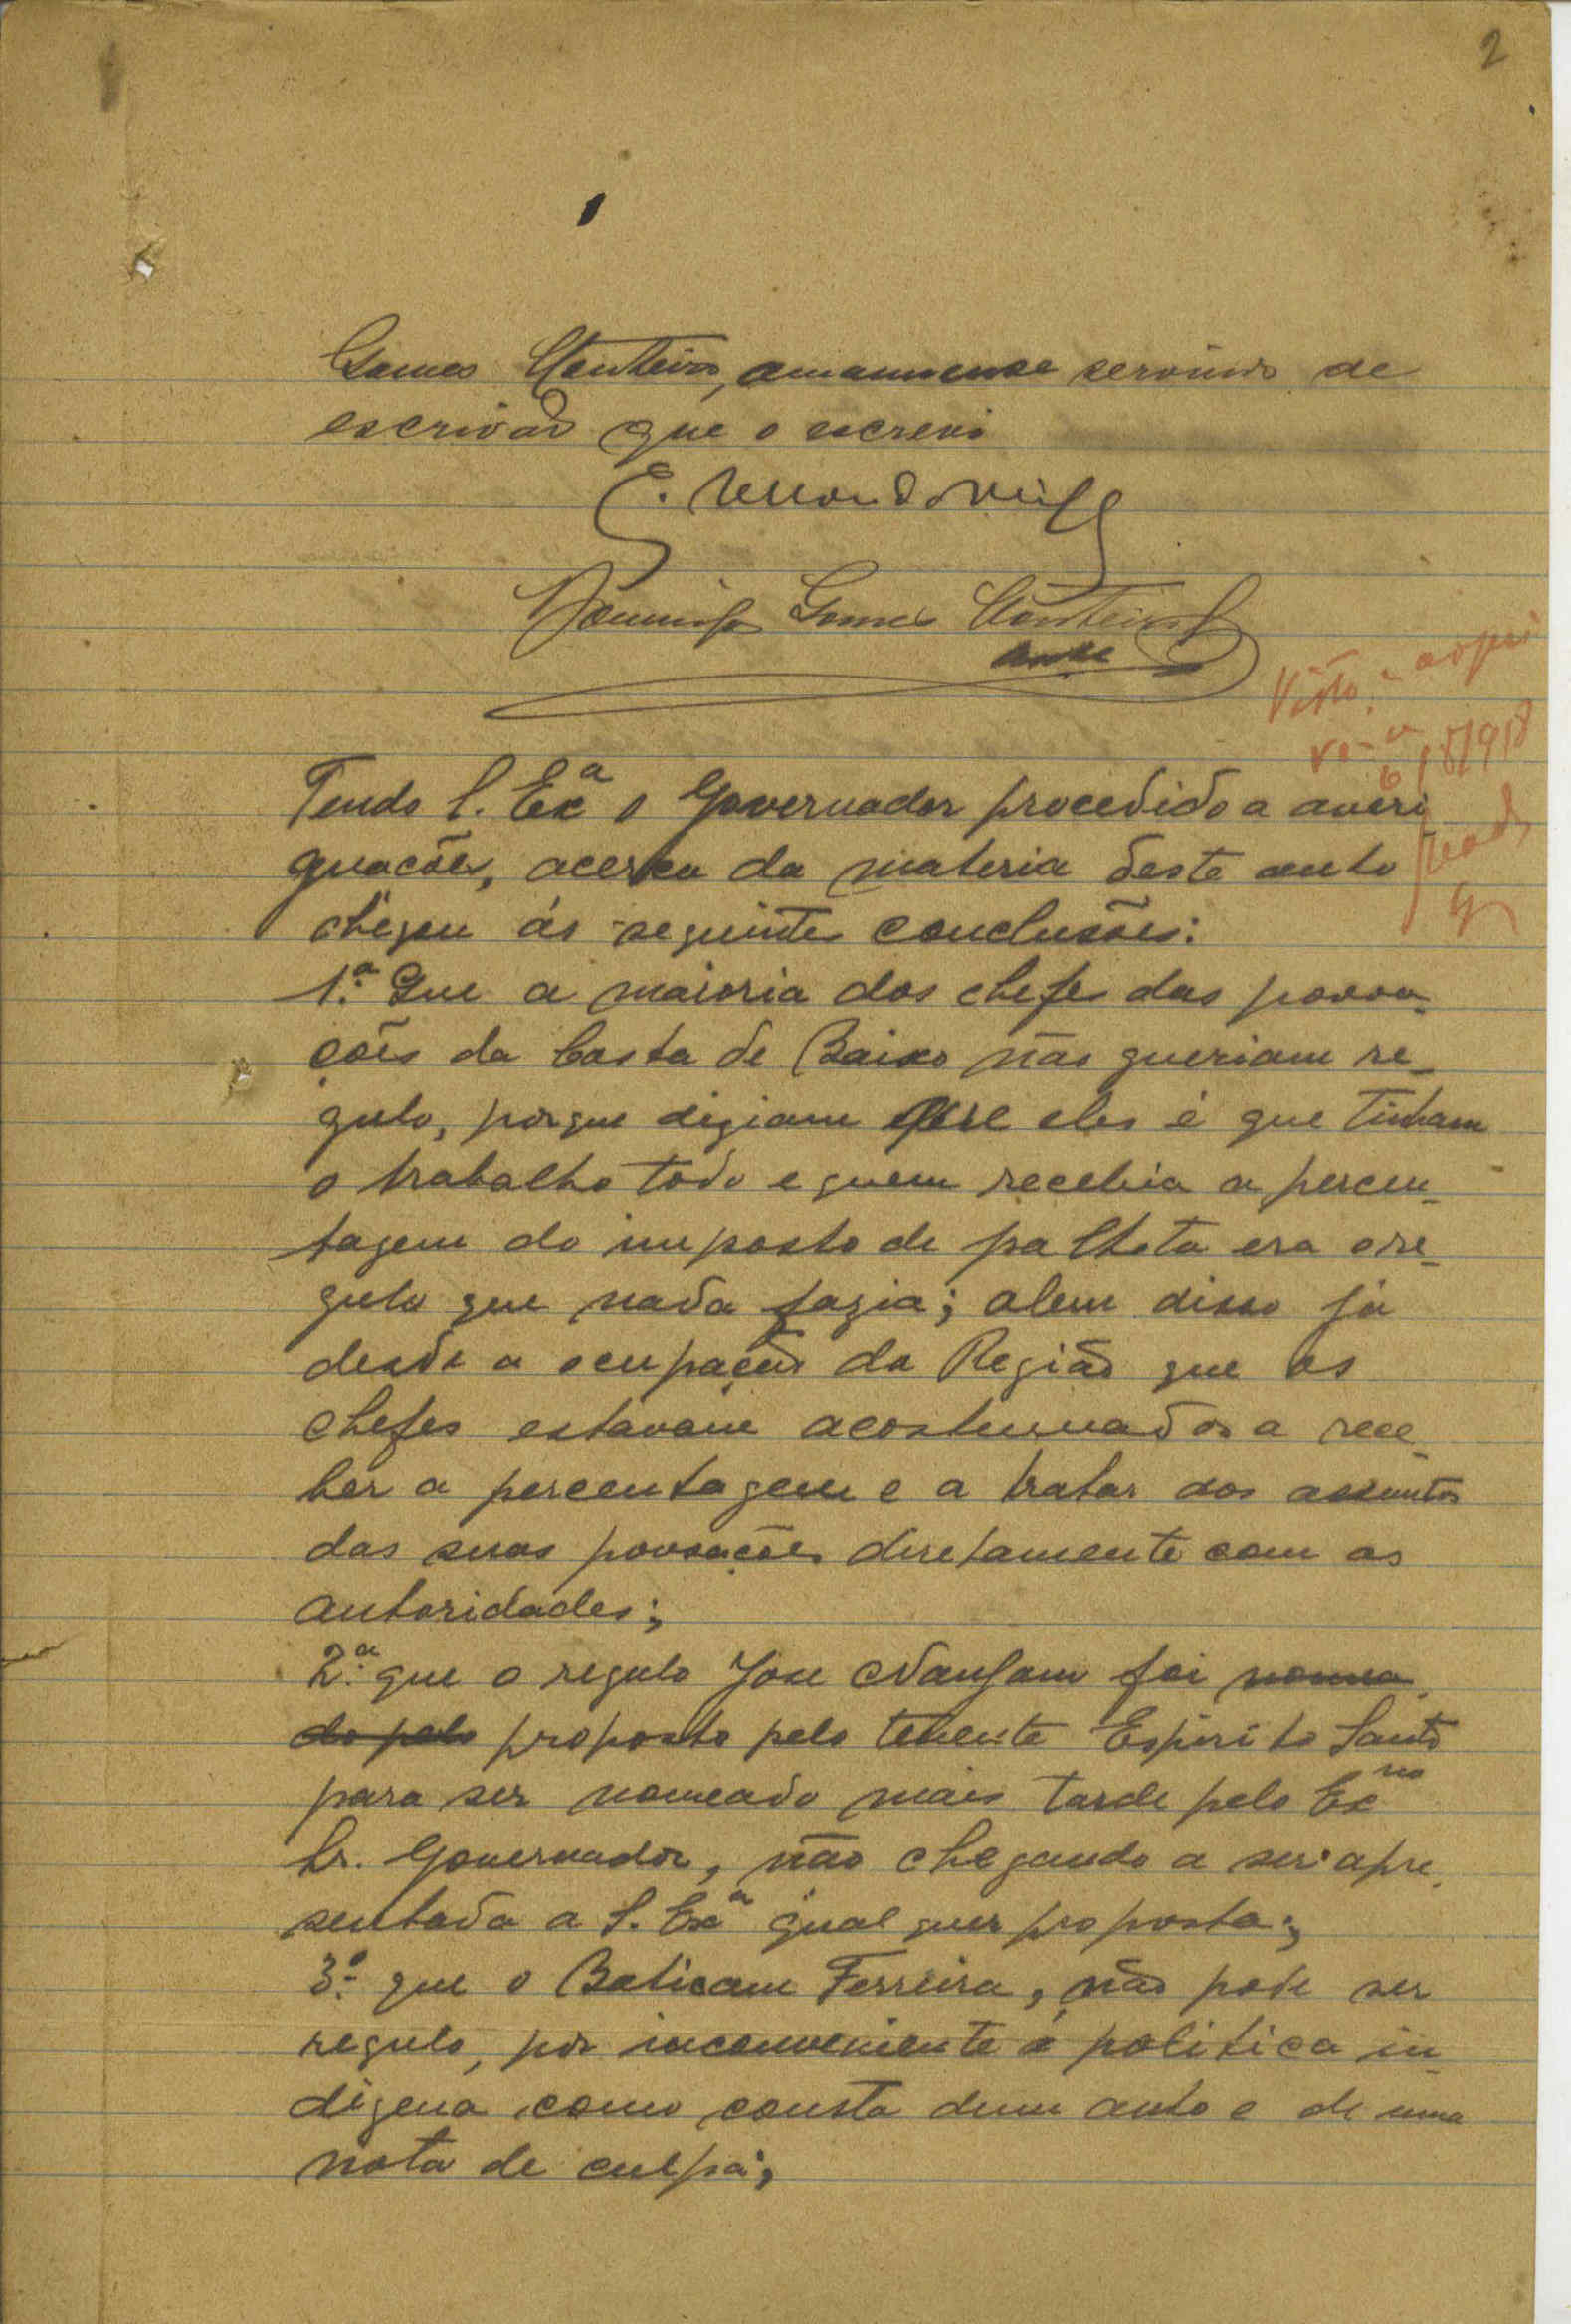 2
Gomes Monteiro, amanuense servindo de
escrivão que o escrevi
Domingos Gomes Monteiro
Visto. arqui
ve-se
6/8/918
Tendo S. Exª o Governador procedido a averi
guações, acerca da materia deste auto
chegou ás seguintes conclusões:
1.ª Que a maioria dos chefes das povoa-
ções da Costa de Baixo não queriam re-
gulo, porque diziam que eles é que tinham
o trabalho todo e quem recebia a percen-
tagem do imposto de palhota era o re-
gulo que nada fazia; alem disso já
desde a ocupação da Região que os
chefes estavam acostumados a rece-
ber a percentagem e a tratar dos assuntos
das suas povoações diretamente com as
autoridades;
2.ª que o regulo Jose Nanfam foi nomea-
do pelo proposto pelo tenente Espirito Santo
para ser nomeado mais tarde pelo Exmo
Sr. Governador, não chegando a ser apre-
sentada a S. Exª qualquer proposta;
3.º que o Batican Ferreira, não pode ser
regulo, por inconveniente á politica in-
digena como consta dum auto e de uma
nota de culpa;